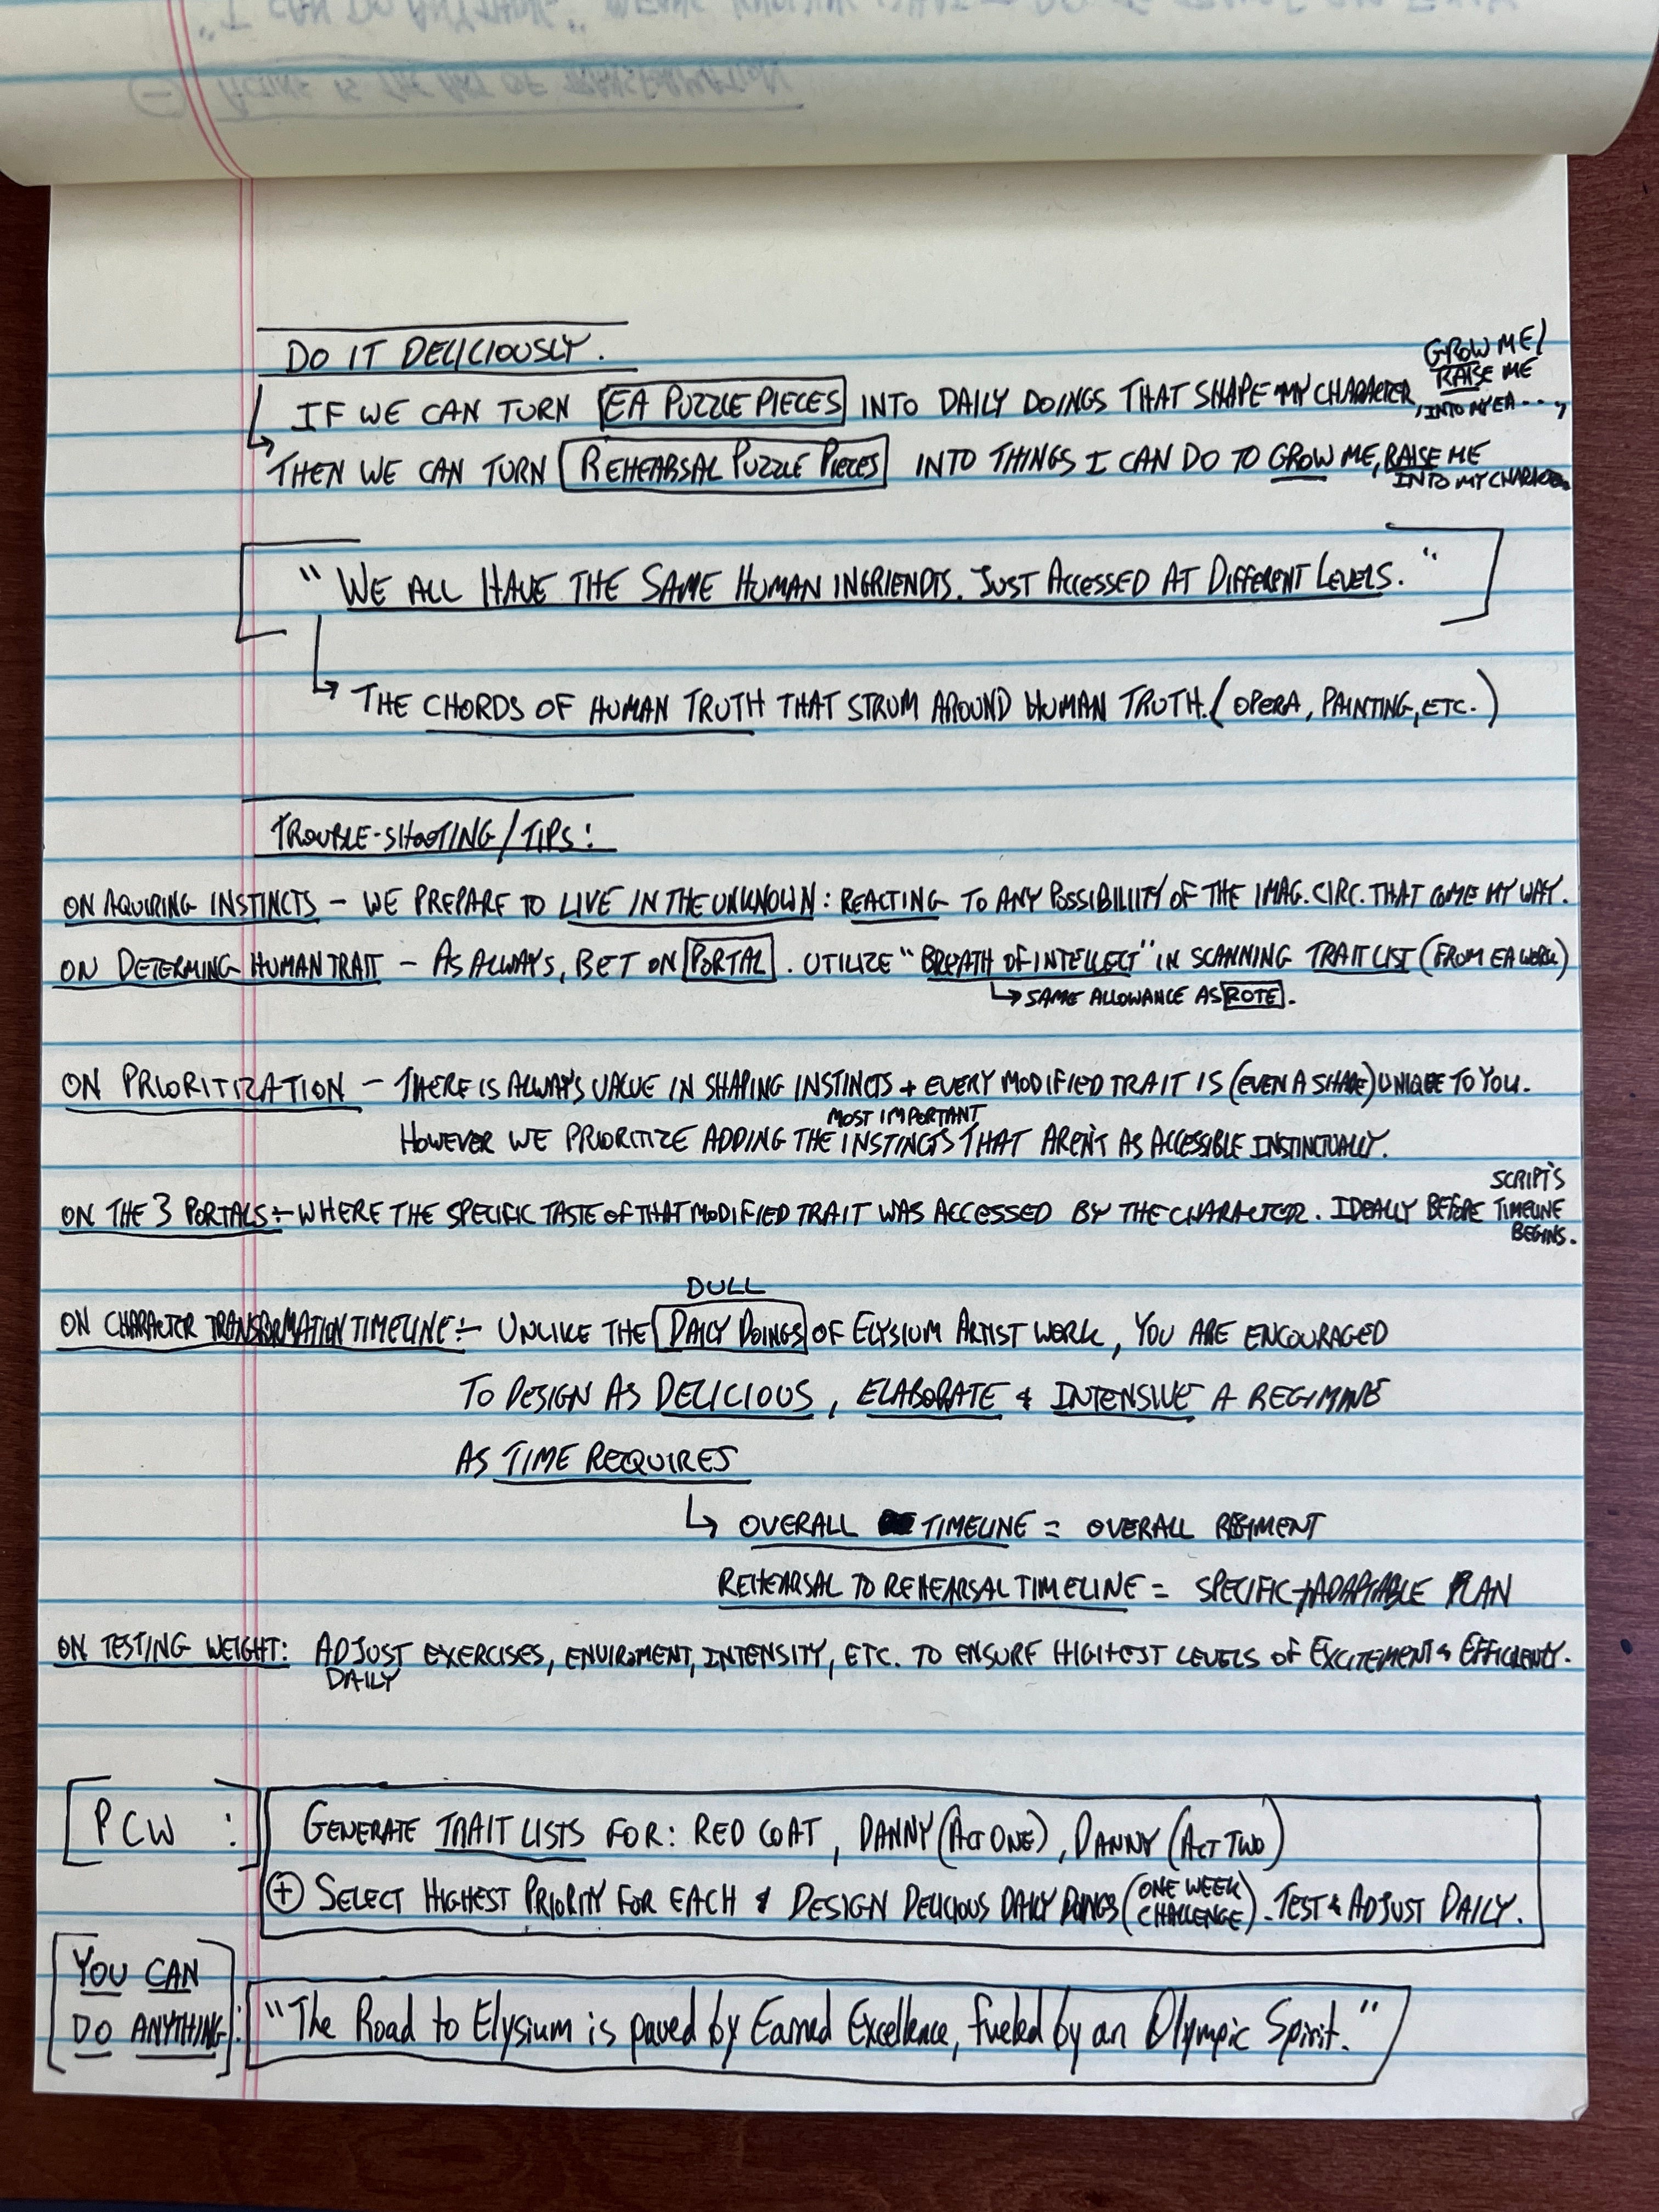 "I CAN DO ANYTHING"
ACTING IS THE ART OF TRANSFORMATION
DO IT DELICIOUSLY.
IF WE CAN TURN EA PUZZLE PIECES INTO DAILY DOINGS THAT SHAPE MY CHARACTER, GROW ME/ RAISE ME INTO MY EA...,
THEN WE CAN TURN REHEARSAL PUZZLE PIECES INTO THINGS I CAN DO TO GROW ME, RAISE ME INTO MY
"WE ALL HAVE THE SAME HUMAN INGRIENDTS. JUST ACCESSED AT DIFFERENT LEVELS."
THE CHORDS OF HUMAN TRUTH THAT STRUM AROUND HUMAN TRUTH. (OPERA, PAINTING, ETC.)
TROUBLE-SHOOTING/TIPS:
ON AQUIRING INSTINCTS - WE PREPARE TO LIVE IN THE UNKNOWN: REACTING TO ANY POSSIBILIITY OF THE IMAG. CIRC. THAT COME MY WAY.
ON DETERMING HUMAN TRAIT - AS ALWAYS, BET ON PORTAL. UTILIZE "BREATH OF INTELLECT" IN SCANNING TRAIT LIST (FROM EA WORK)
SAME ALLOWANCE AS ROTE.
ON PRIORITIZATION - THERE IS ALWAYS VALUE IN SHAPING INSTINCTS + EVERY MODIFIED TRAIT IS (EVEN A SHADE) UNIQUE TO YOU.
MOST IMPORTANT
HOWEVER WE PRIORITIZE ADDING THE INSTINCTS THAT AREN'T AS ACCESSIBLE INSTINCTUALLY.
ON THE 3 PORTALS:- WHERE THE SPECIFIC TASTE OF THAT MODIFIED TRAIT WAS ACCESSED BY THE CHARACTER. IDEALLY BEFORE SCRIPT'S TIMELINE BEGINS.
DULL
ON CHARACTER TRANSFORMATION TIMELINE:- UNLIKE THE DAILY DOINGS OF ELYSIUM ARTIST WORK, YOU ARE ENCOURAGED
TO DESIGN AS DELICIOUS, ELABORATE & INTENSIVE A REGIMINE
AS TIME REQUIRES
OVERALL TIMELINE = OVERALL REGIMENT
REHEARSAL TO REHEARSAL TIMELINE = SPECIFIC + ADAPTABLE PLAN
ON TESTING WEIGHT: ADJUST EXERCISES, ENVIROMENT, INTENSITY, ETC. TO ENSURE HIGHEST LEVELS OF EXCITEMENT & EFFICIENTY.
DAILY
PCW : GENERATE TRAIT LISTS FOR: RED COAT, DANNY (ACT ONE), DANNY (ACT TWO)
+ SELECT HIGHEST PRIORITY FOR EACH & DESIGN DELICIOUS DAILY DOINGS (ONE WEEK CHALLENGE). TEST & ADJUST DAILY.
YOU CAN
DO ANYTHING: "The Road to Elysium is paved by Earned Excellence, fueled by an Olympic Spirit."